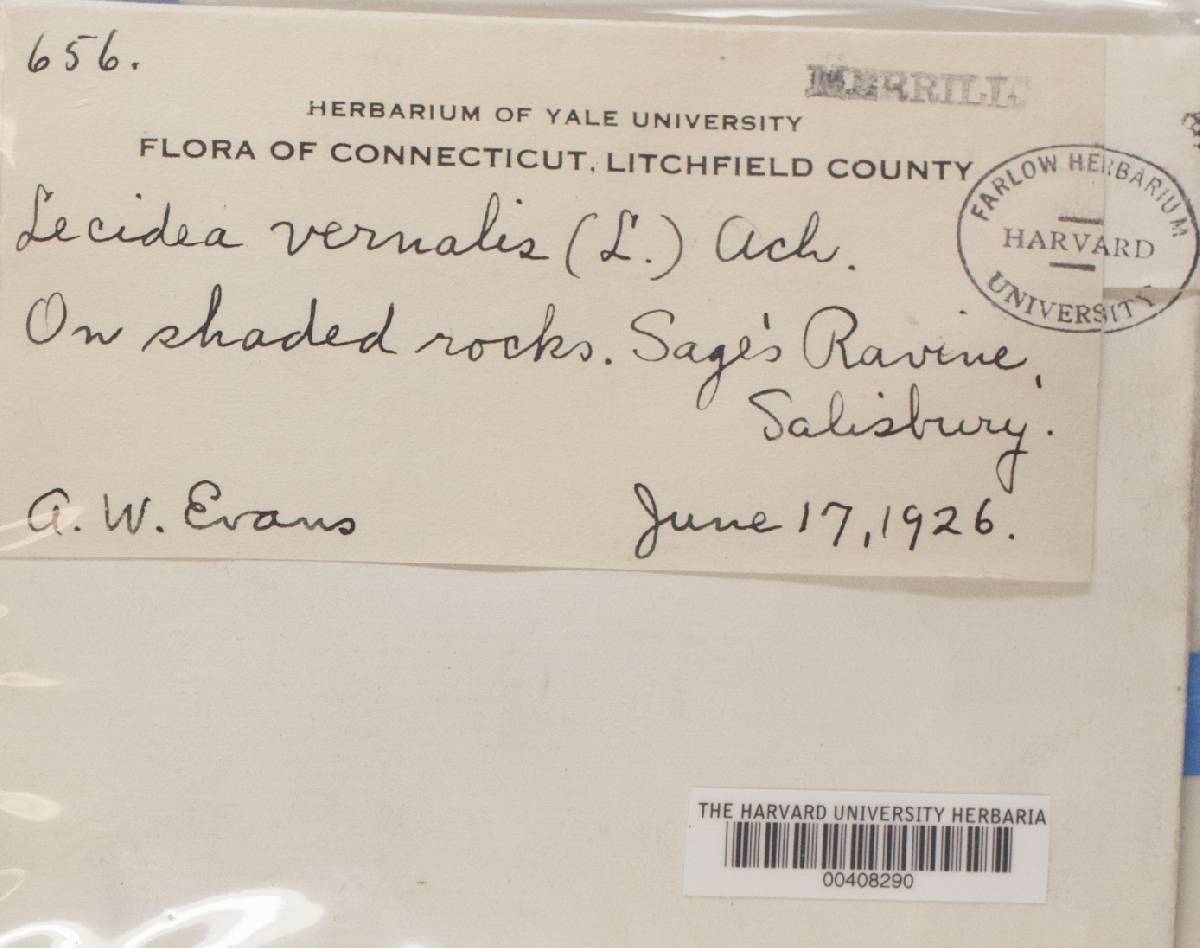 656.
MERRILL
HERBARIUM OF YALE UNIVERSITY
FLORA OF CONNECTICUT, LITCHFIELD COUNTY
FARLOW HERBARIUM
HARVARD
UNIVERSITY
Lecidea vernalis (L.) Ach.
On shaded rocks. Sage's Ravine,
Salisbury.
A. W. Evans June 17, 1926.
THE HARVARD UNIVERSITY HERBARIA
00408290